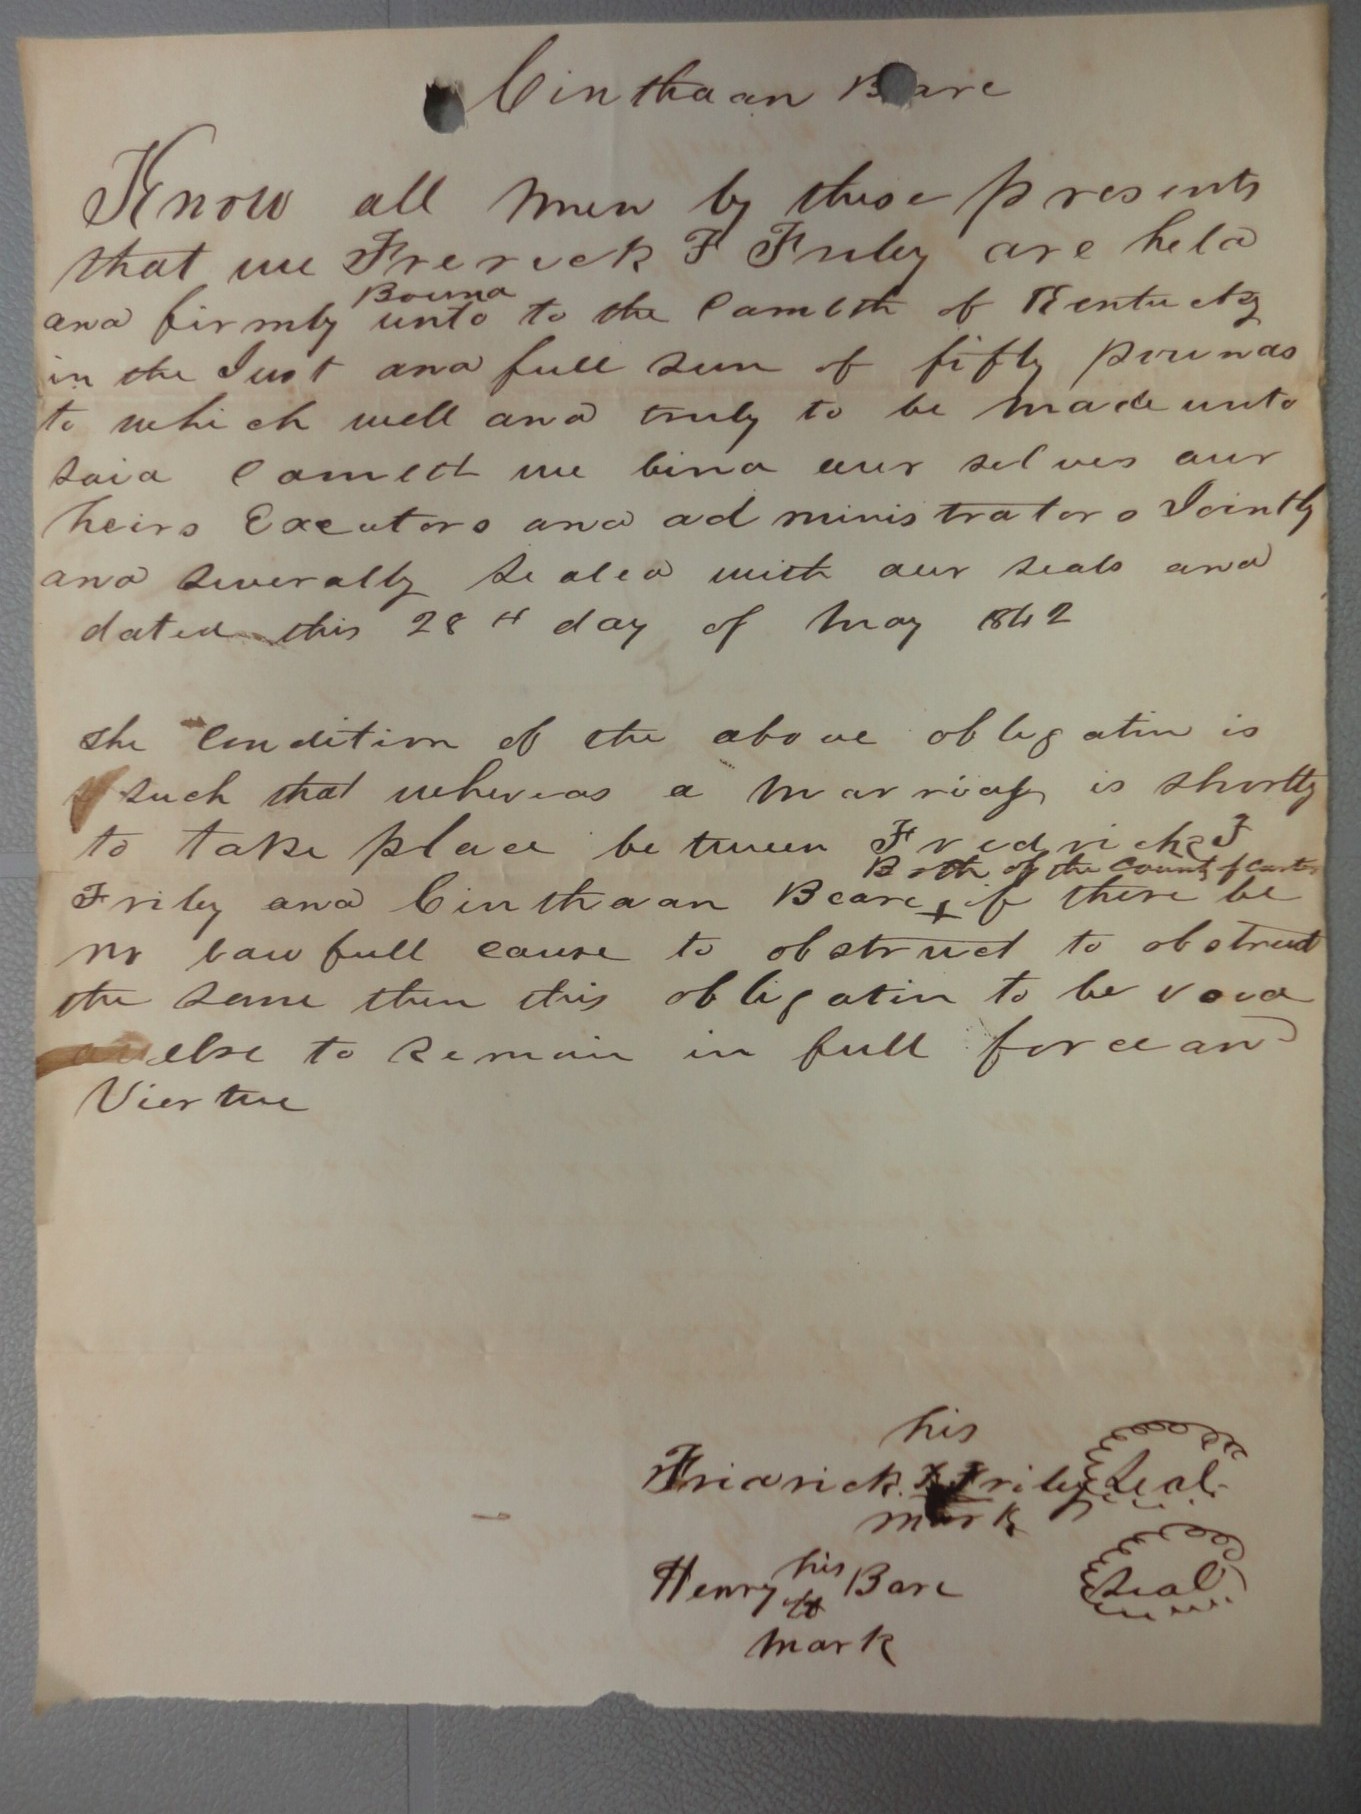 Cinthaan Bare
Know all men by these presents
that we Frerick F Friley are held
Bound
and firmly unto to the Comlth of Kentucky
in the Just and full sum of fifty pounds
to which well and truly to be made unto
said Comlth we bind our selves our
heirs Executors and administrators Jointly
and severally sealed with our seals and
dated this 28th day of May 1842
the condition of the above obligatin is
such that whereas a marriage is shortly
to take place between Fredrick F
Both of the County of Carter
Friley and Cinthaan Beare + if there be
no lawfull cause to obstruct to obstruct
the same then this obligatin to be void
or else to remain in full force and
Viertue
his
Fridrick F Friley Seal
mark
his
Henry Bare Seal
mark